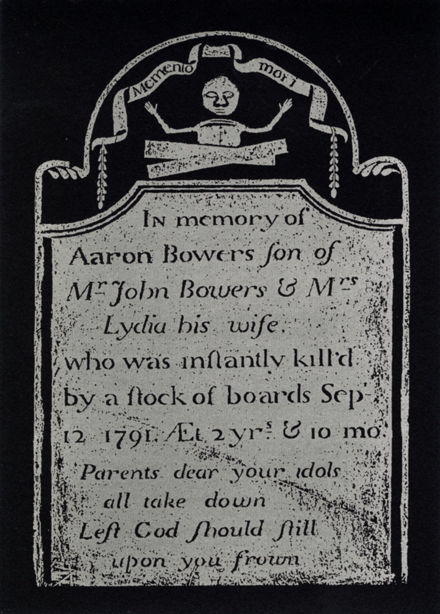 Memento mori
In memory of
Aaron Bowers ſon of
Mr John Bowers & Mrs
Lydia his wife.
who was inſtantly kill'd
by a ſtock of boards Sept
12 1791. Æt 2 yrs & 10 mo.
Parents dear your idols
all take down
Leſt God ſhould ſtill
upon you frown